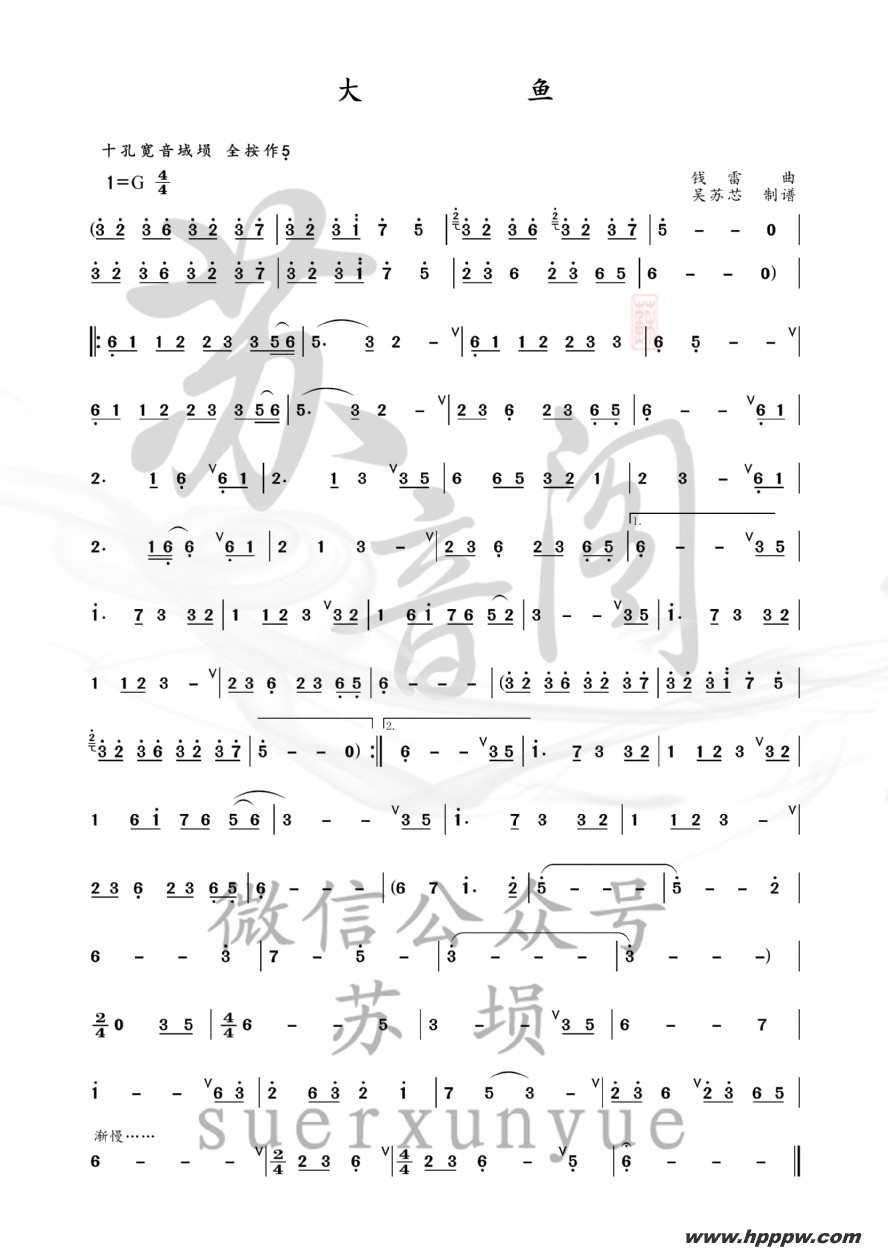 大 鱼
十孔宽音域埙 全按作5̣
1=G 4/4
钱 雷 曲
吴苏芯 制谱
(3̇ 2̇ 3̇ 6̇ 3̇ 2̇ 3̇ 7̇ | 3̇ 2̇ 3̇ i̇ 7̇ 5̇ | 2̇ 3̇ 2̇ 3̇ 6̇ 2̇ 3̇ 2̇ 3̇ 7̇ | 5̇ - - 0 |
3̇ 2̇ 3̇ 6̇ 3̇ 2̇ 3̇ 7̇ | 3̇ 2̇ 3̇ i̇ 7̇ 5̇ | 2̇ 3̇ 6 2̇ 3̇ 6 5 | 6 - - 0) |
‖: 6̣ 1 1 2 2 3 3 5 6 | 5. 3 2 - ∨ | 6̣ 1 1 2 2 3 3 | 6̣ 5̣ - - ∨ |
6̣ 1 1 2 2 3 3 5 6 | 5. 3 2 - ∨ | 2 3 6̣ 2 3 6̣ 5̣ | 6̣ - - ∨ 6̣ 1 |
2. 1 6̣ ∨ 6̣ 1 | 2. 1 3 ∨ 3 5 | 6 6 5 3 2 1 | 2 3 - ∨ 6̣ 1 |
2. 1 6̣ 6̣ ∨ 6̣ 1 | 2 1 3 - ∨ | 2 3 6̣ 2 3 6̣ 5̣ | 1. 6̣ - - ∨ 3 5 |
i. 7 3 3 2 | 1 1 2 3 ∨ 3 2 | 1 6 i 7 6 5 2 | 3 - - ∨ 3 5 | i. 7 3 3 2 |
1 1 2 3 - ∨ | 2 3 6̣ 2 3 6̣ 5̣ | 6̣ - - - | (3̇ 2̇ 3̇ 6̇ 3̇ 2̇ 3̇ 7̇ | 3̇ 2̇ 3̇ i̇ 7̇ 5̇ |
2̇ 3̇ 2̇ 3̇ 6̇ 3̇ 2̇ 3̇ 7̇ | 5̇ - - 0) :‖ 2. 6̣ - - ∨ 3 5 | i. 7 3 3 2 | 1 1 2 3 ∨ 3 2 |
1 6 i 7 6 5 6 | 3 - - ∨ 3 5 | i. 7 3 3 2 | 1 1 2 3 - ∨ |
2 3 6̣ 2 3 6̣ 5̣ | 6̣ - - - | (6 7 i. 2̇ | 5̇ - - - | 5̇ - - 2̇ |
6 - - 3̇ | 7 - 5̇ - | 3̇ - - - | 3̇ - - -) |
2/4 0 3 5 | 4/4 6 - - 5 | 3 - - ∨ 3 5 | 6 - - 7 |
i - - ∨ 6 3̇ | 2̇ 6 3̇ 2̇ i | 7 5 3 - ∨ | 2̇ 3̇ 6 ∨ 2̇ 3̇ 6 5 |
渐慢……
6 - - - ∨ | 2/4 2 3 6̣ | 4/4 2 3 6̣ - ∨ 5̣ | 6̣ - - - ‖
苏音阁
微信公众号
苏埙
suerxunyue
www.hpppw.com